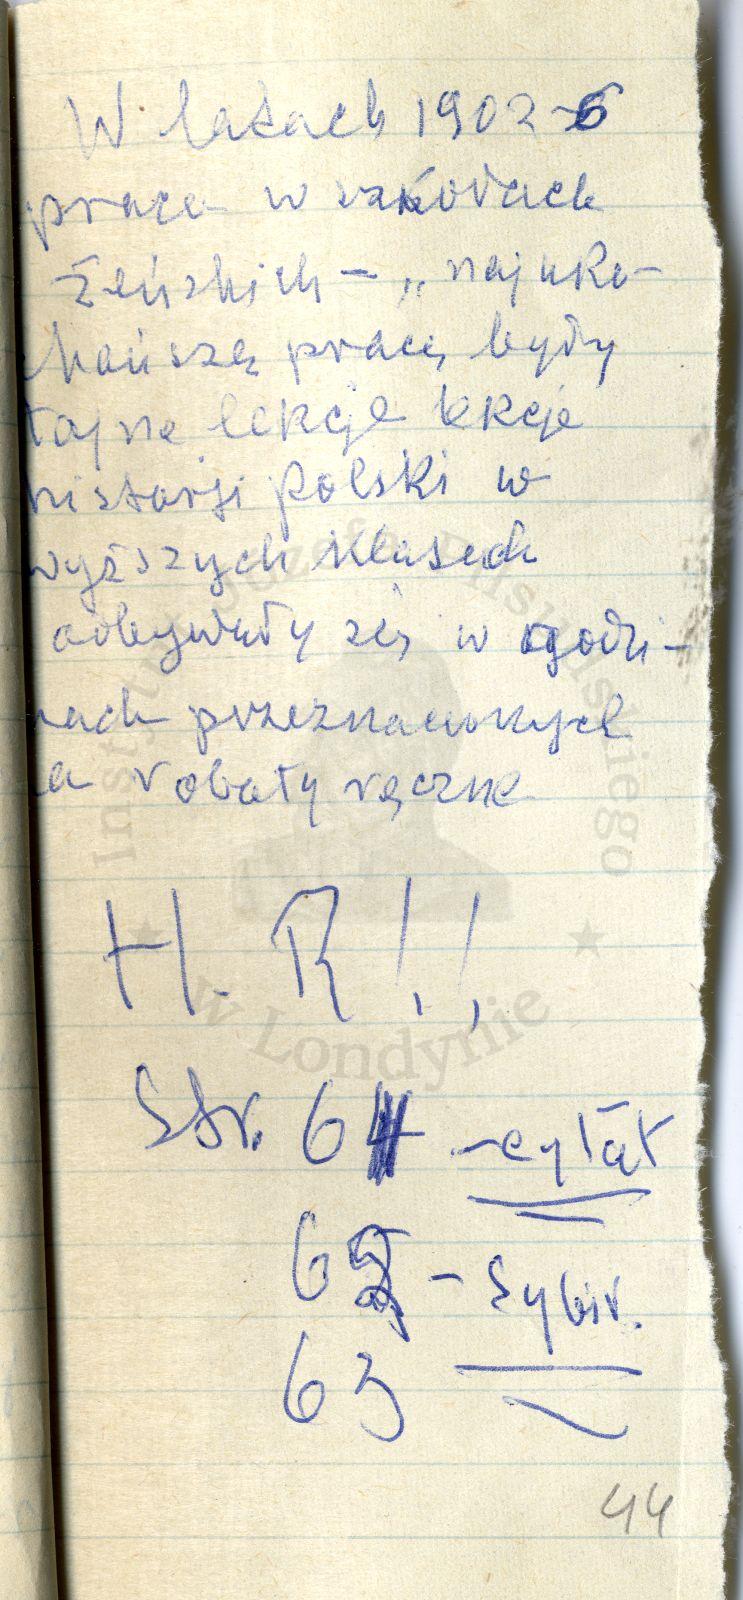 W latach 1902-6
praca w szkołach
żeńskich – „najuko-
chańszą pracą były
tajne lekcje lekcje
historji Polski w
wyższych klasach
odbywały się w godzi-
nach przeznaczonych
na roboty ręczne
H. R!!
Str. 64 - cytat
65 - Sybir.
63
44
Instytut Józefa Piłsudskiego
w Londynie